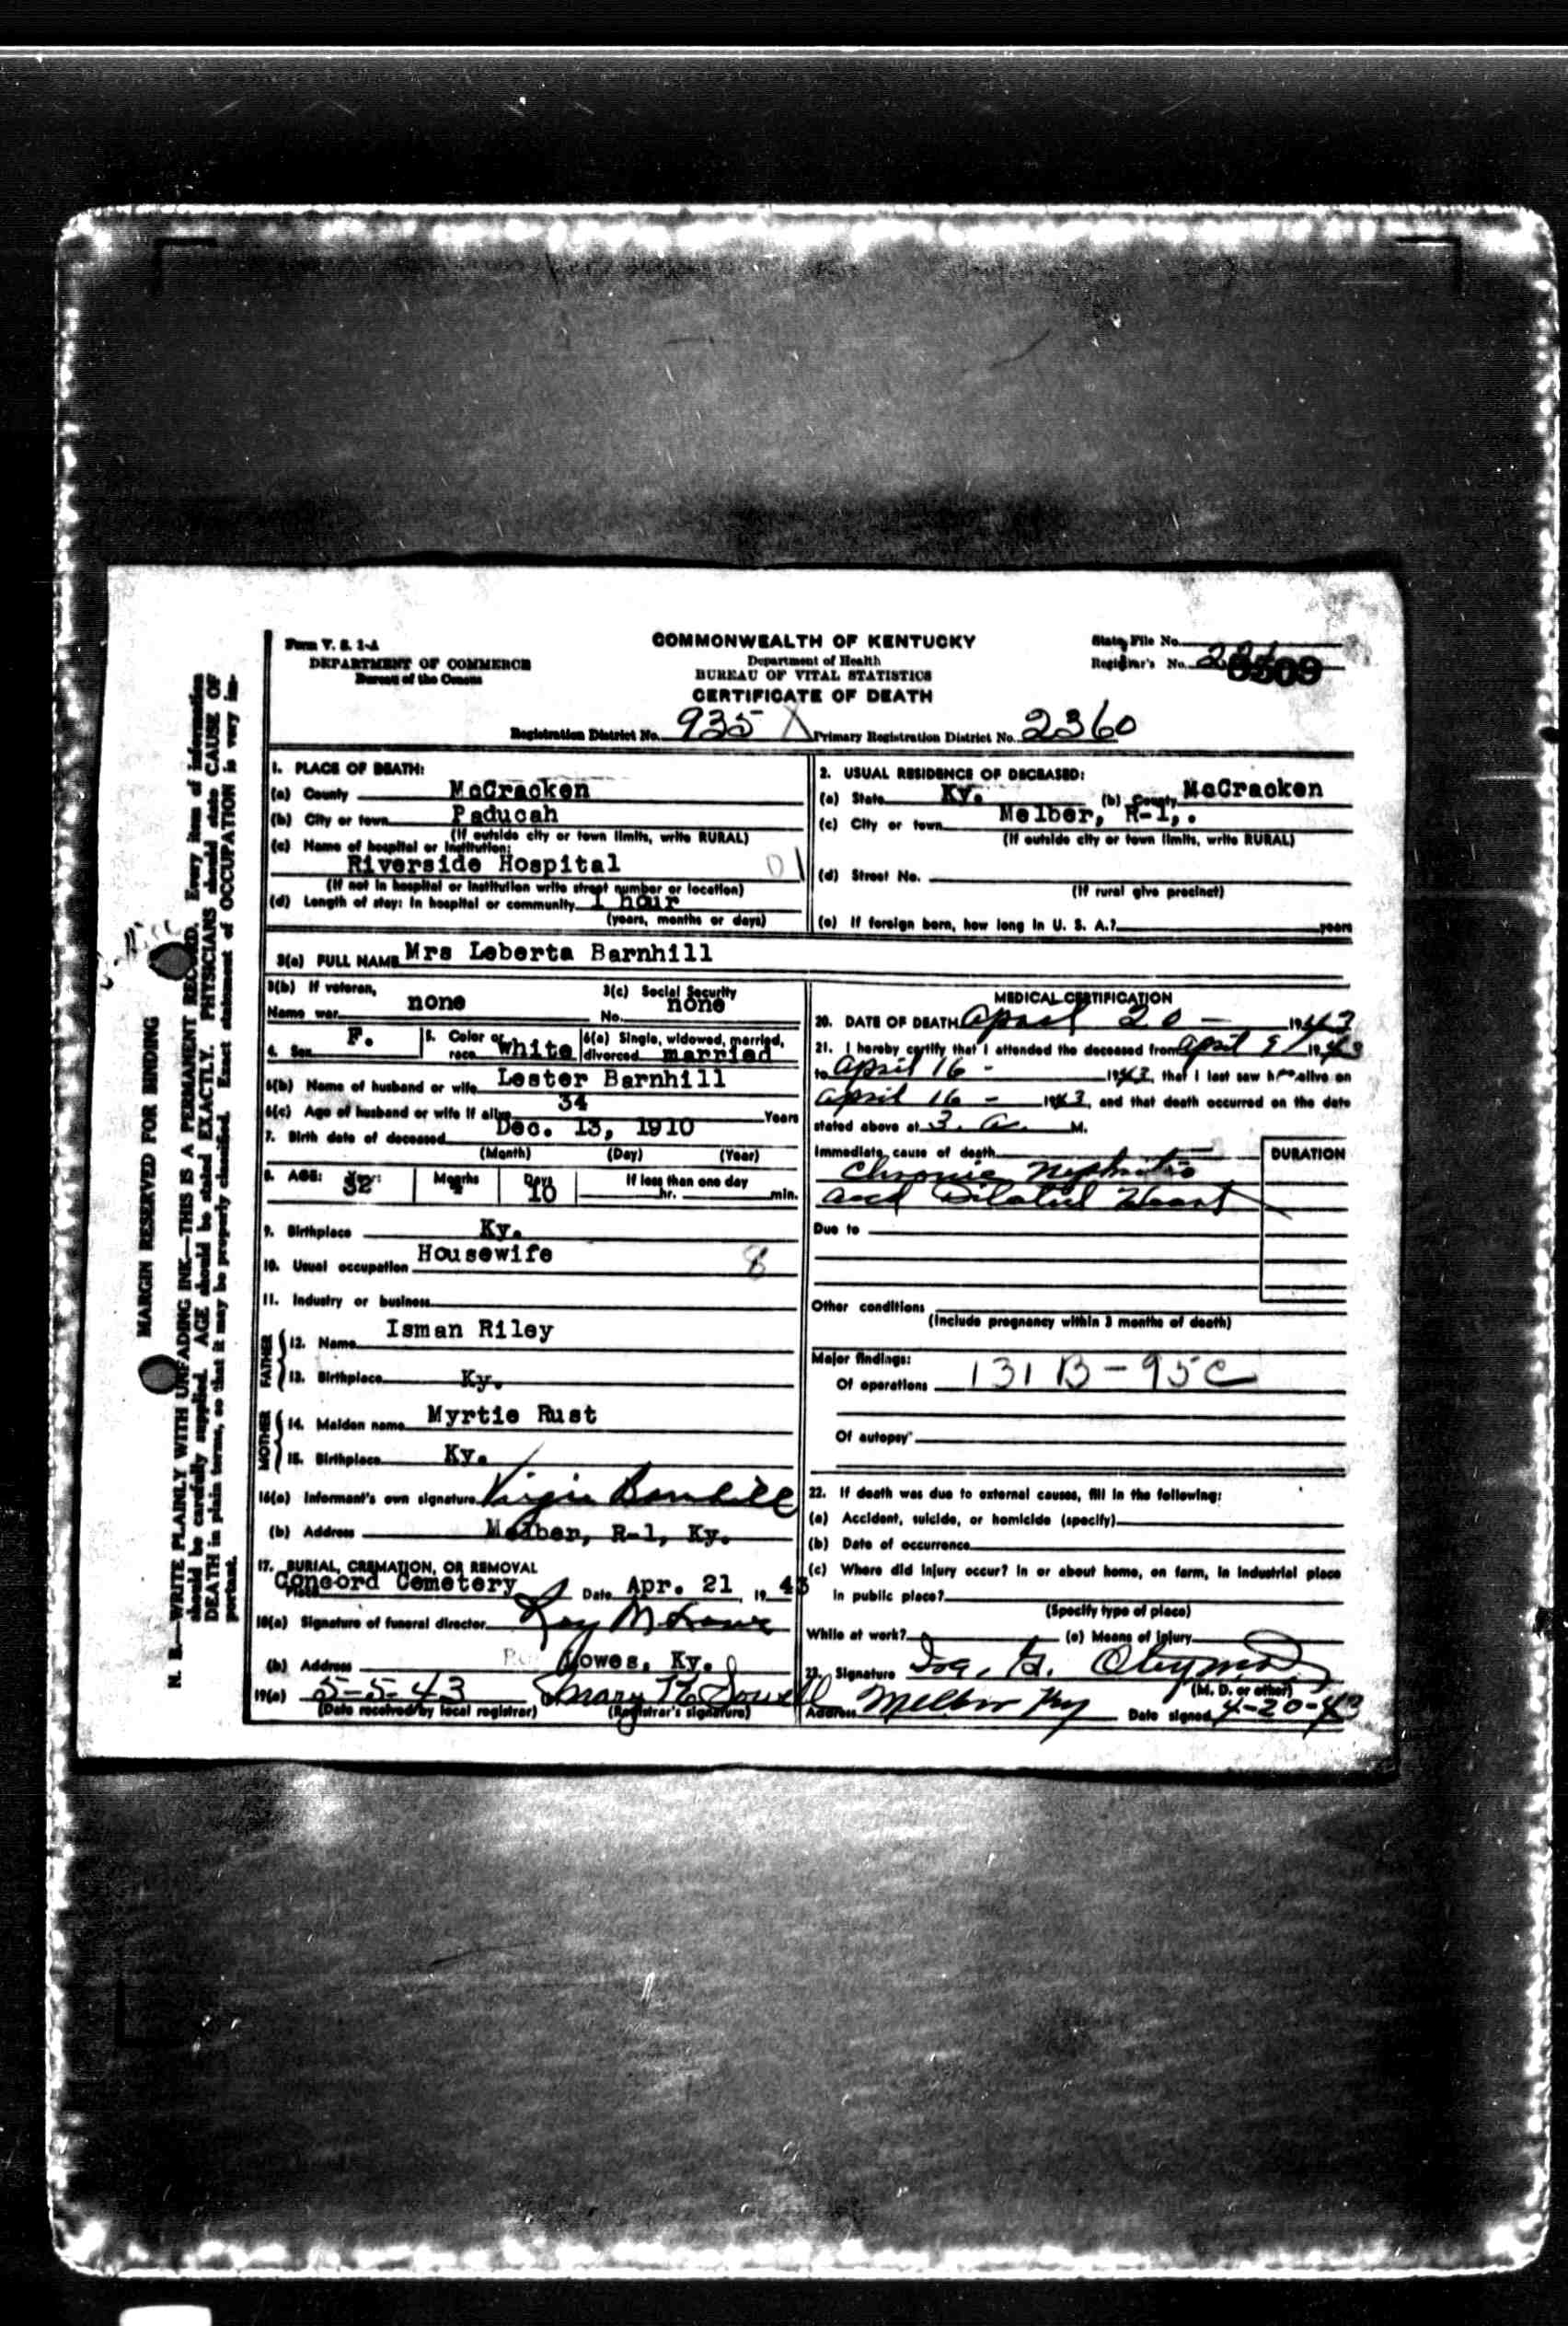 Form V. S. 1-A
DEPARTMENT OF COMMERCE
Bureau of the Census
COMMONWEALTH OF KENTUCKY
Department of Health
BUREAU OF VITAL STATISTICS
CERTIFICATE OF DEATH
State File No.
Registrar's No.
Registration District No. 935 X Primary Registration District No. 2360
1. PLACE OF DEATH:
(a) County McCracken
(b) City or town Paducah
(If outside city or town limits, write RURAL)
(c) Name of hospital or institution:
Riverside Hospital 01
(If not in hospital or institution write street number or location)
(d) Length of stay: In hospital or community 1 hour
(years, months or days)
2. USUAL RESIDENCE OF DECEASED:
(a) State Ky. (b) County McCracken
(c) City or town Melber, R-1,.
(If outside city or town limits, write RURAL)
(d) Street No.
(If rural give precinct)
(e) If foreign born, how long in U. S. A.? years
3(a) FULL NAME Mrs Leberta Barnhill
3(b) If veteran,
Name war none
3(c) Social Security
No. none
4. Sex F.
5. Color or
race White
6(a) Single, widowed, married,
divorced married
6(b) Name of husband or wife Lester Barnhill
6(c) Age of husband or wife if alive 34 Years
7. Birth date of deceased Dec. 13, 1910
(Month) (Day) (Year)
8. AGE: 32 Months Days 10 If less than one day
hr. min.
9. Birthplace Ky.
10. Usual occupation Housewife 8
11. Industry or business
FATHER
12. Name Isman Riley
13. Birthplace Ky.
MOTHER
14. Maiden name Myrtie Rust
15. Birthplace Ky.
16(a) Informant's own signature Virgie Barnhill
(b) Address Melber, R-1, Ky.
17. BURIAL, CREMATION, OR REMOVAL
Place Concord Cemetery Date Apr. 21, 1943
18(a) Signature of funeral director Roy M Lowe
(b) Address Lowes, Ky.
19(a) 5-5-43 Mary Sowell
(Date received by local registrar) (Registrar's signature)
MEDICAL CERTIFICATION
20. DATE OF DEATH April 20 - 1943
21. I hereby certify that I attended the deceased from April 9 1943
to April 16 - 1943, that I last saw her alive on
April 16 - 1943, and that death occurred on the date
stated above at 3. a. M.
Immediate cause of death DURATION
Chronic Nephritis
and Dilated Heart
Due to
Other conditions
(Include pregnancy within 3 months of death)
Major findings:
Of operations 131 B - 95 C
Of autopsy
22. If death was due to external causes, fill in the following:
(a) Accident, suicide, or homicide (specify)
(b) Date of occurrence
(c) Where did injury occur? In or about home, on farm, in industrial place
in public place?
(Specify type of place)
While at work? (e) Means of injury
23. Signature
(M. D. or other)
Address Melber Ky Date signed 4-20-43
MARGIN RESERVED FOR BINDING
N. B.—WRITE PLAINLY WITH UNFADING INK—THIS IS A PERMANENT RECORD. Every item of information
should be carefully supplied. AGE should be stated EXACTLY. PHYSICIANS should state CAUSE OF
DEATH in plain terms, so that it may be properly classified. Exact statement of OCCUPATION is very im-
portant.